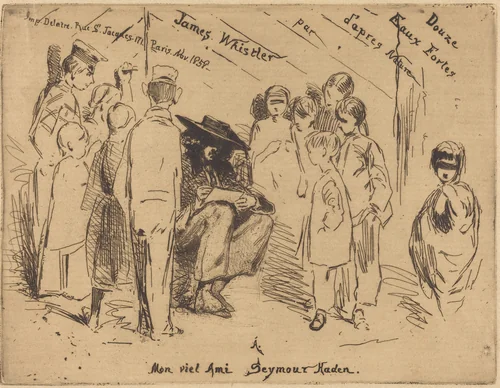 Douze
Eaux Fortes.
d'apres Nature
par
James. Whistler
Imp. Delatre. Rue St. Jacques. 171. Paris. Nov. 1858.
A.
Mon viel Ami Seymour Haden.